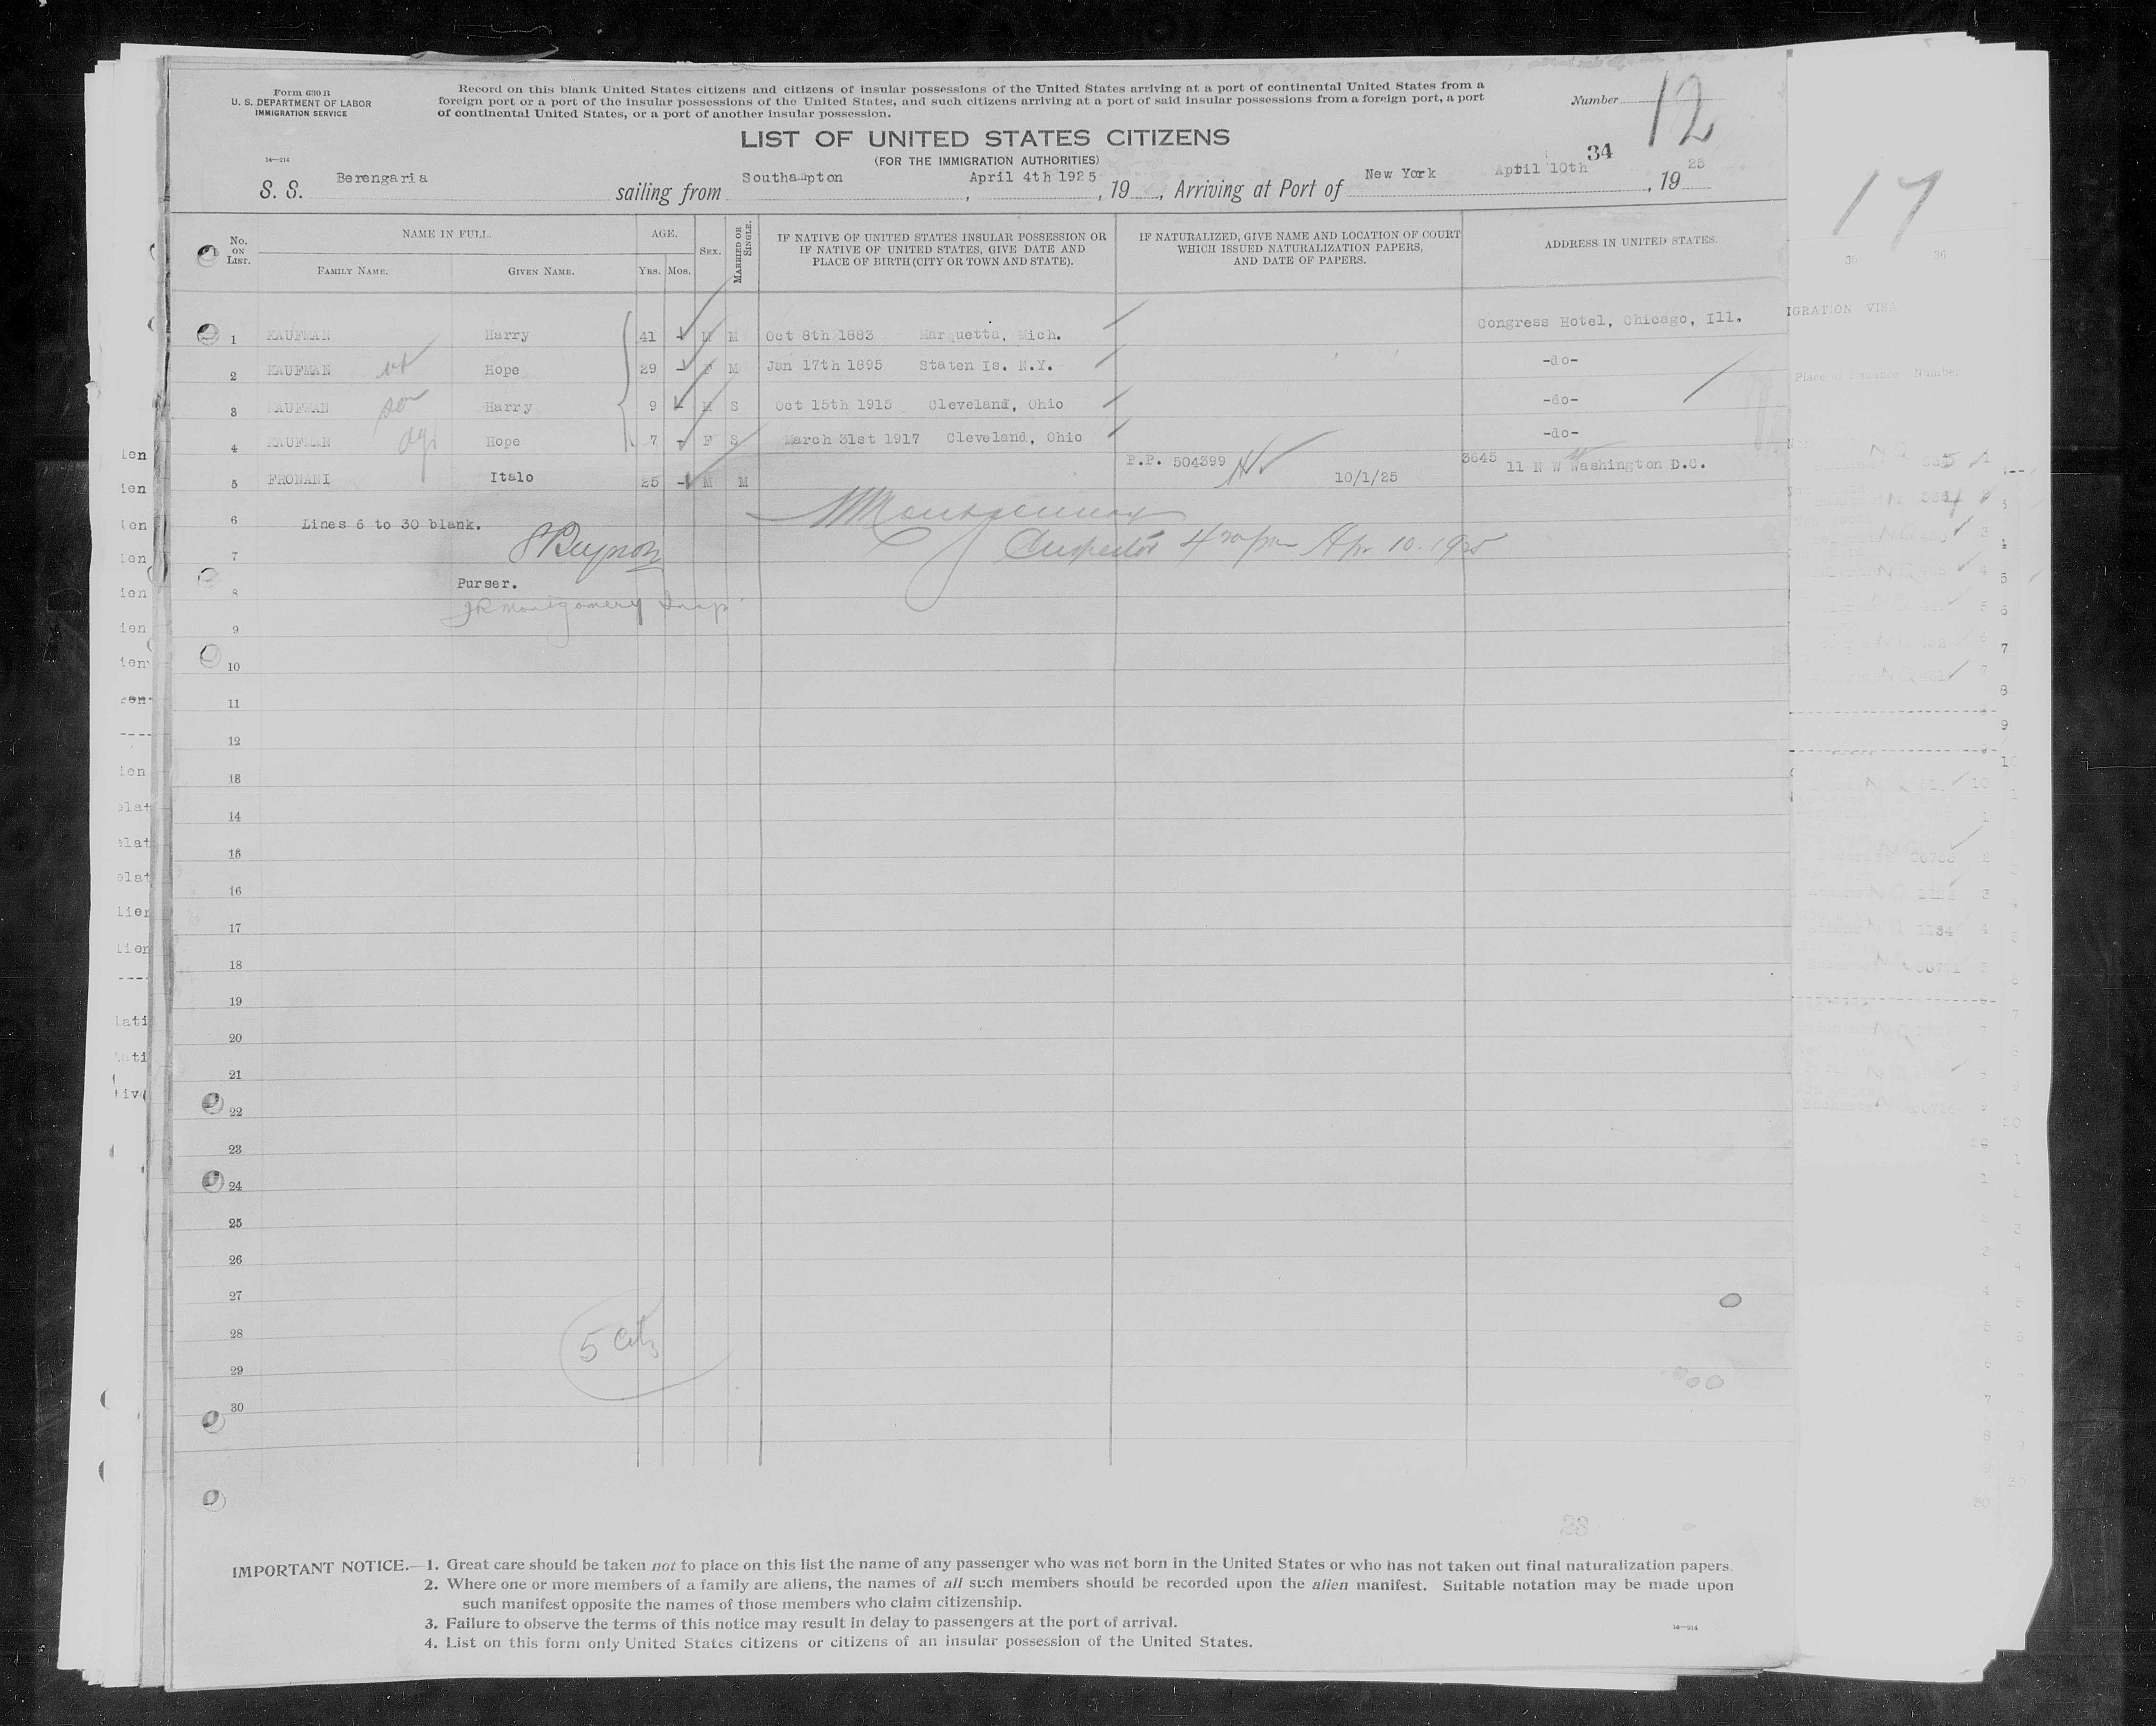 Form 630 B
U. S. DEPARTMENT OF LABOR
IMMIGRATION SERVICE
Record on this blank United States citizens and citizens of insular possessions of the United States arriving at a port of continental United States from a
foreign port or a port of the insular possessions of the United States, and such citizens arriving at a port of said insular possessions from a foreign port, a port
of continental United States, or a port of another insular possession.
Number 12
LIST OF UNITED STATES CITIZENS
(FOR THE IMMIGRATION AUTHORITIES)
14—214
34
S. S. Berengaria sailing from Southampton, April 4th 1925, 19, Arriving at Port of New York April 10th, 19 25
17
35 36
No. ON LIST.
NAME IN FULL.
FAMILY NAME. GIVEN NAME.
AGE.
YRS. MOS.
SEX.
MARRIED OR SINGLE.
IF NATIVE OF UNITED STATES INSULAR POSSESSION OR
IF NATIVE OF UNITED STATES, GIVE DATE AND
PLACE OF BIRTH (CITY OR TOWN AND STATE).
IF NATURALIZED, GIVE NAME AND LOCATION OF COURT
WHICH ISSUED NATURALIZATION PAPERS,
AND DATE OF PAPERS.
ADDRESS IN UNITED STATES.
IGRATION VISA
Place of Issuance Number
1 KAUFMAN Harry 41 - M M Oct 8th 1883 Marquetta, Mich. Congress Hotel, Chicago, Ill.
2 KAUFMAN Hope 29 - F M Jan 17th 1895 Staten Is. N.Y. -do-
3 KAUFMAN son Harry 9 - M S Oct 15th 1915 Cleveland, Ohio -do-
4 KAUFMAN Hope 7 - F S March 31st 1917 Cleveland, Ohio -do-
5 FRONANI Italo 25 - M M P.P. 504399 10/1/25 3645 11 N W Washington D.C.
6 Lines 6 to 30 blank.
7 Inspector 4 30 pm Apr. 10. 1925
8 Purser.
JR Montgomery Insp
9
10
11
12
13
14
15
16
17
18
19
20
21
22
23
24
25
26
27
28
5 Citz
29
30
23
IMPORTANT NOTICE.—1. Great care should be taken not to place on this list the name of any passenger who was not born in the United States or who has not taken out final naturalization papers.
2. Where one or more members of a family are aliens, the names of all such members should be recorded upon the alien manifest. Suitable notation may be made upon
such manifest opposite the names of those members who claim citizenship.
3. Failure to observe the terms of this notice may result in delay to passengers at the port of arrival.
4. List on this form only United States citizens or citizens of an insular possession of the United States.
14—214